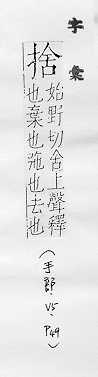 字彙
捨
始野切舍上聲釋
也棄也施也去也
(手部.V5.P49)